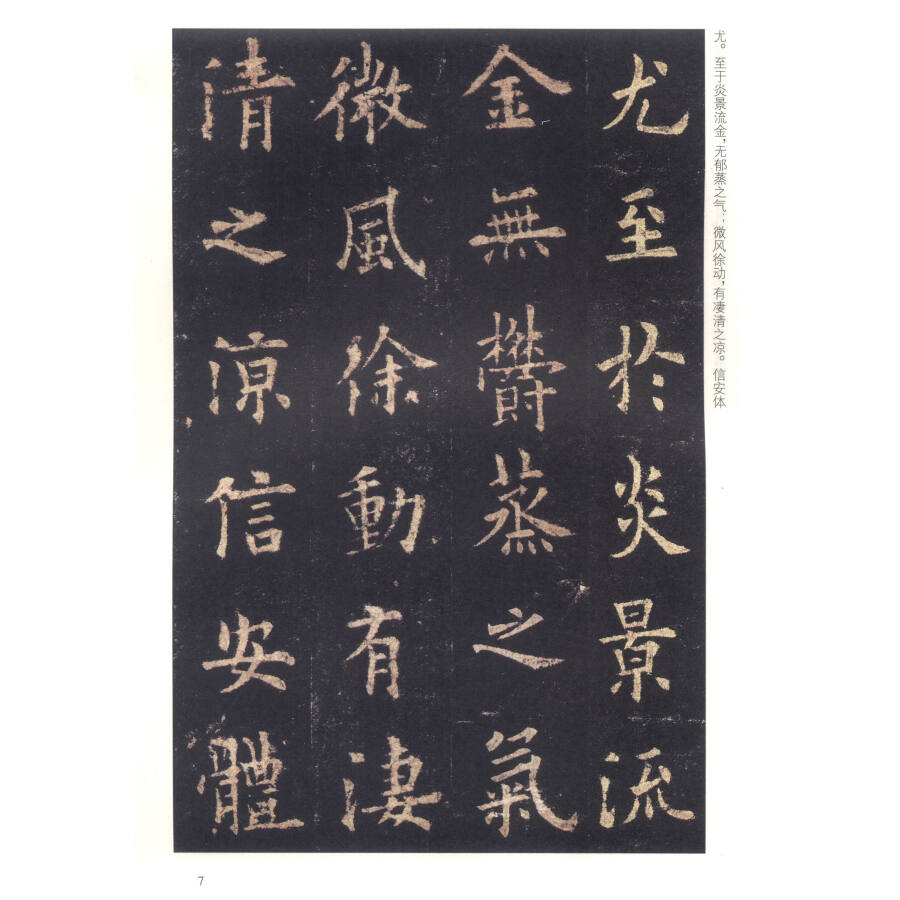 尤至於炎景流
金無欝蒸之氣
微風徐動有淒
清之涼信安體
尤。至于炎景流金，无郁蒸之气；微风徐动，有凄清之凉。信安体
7